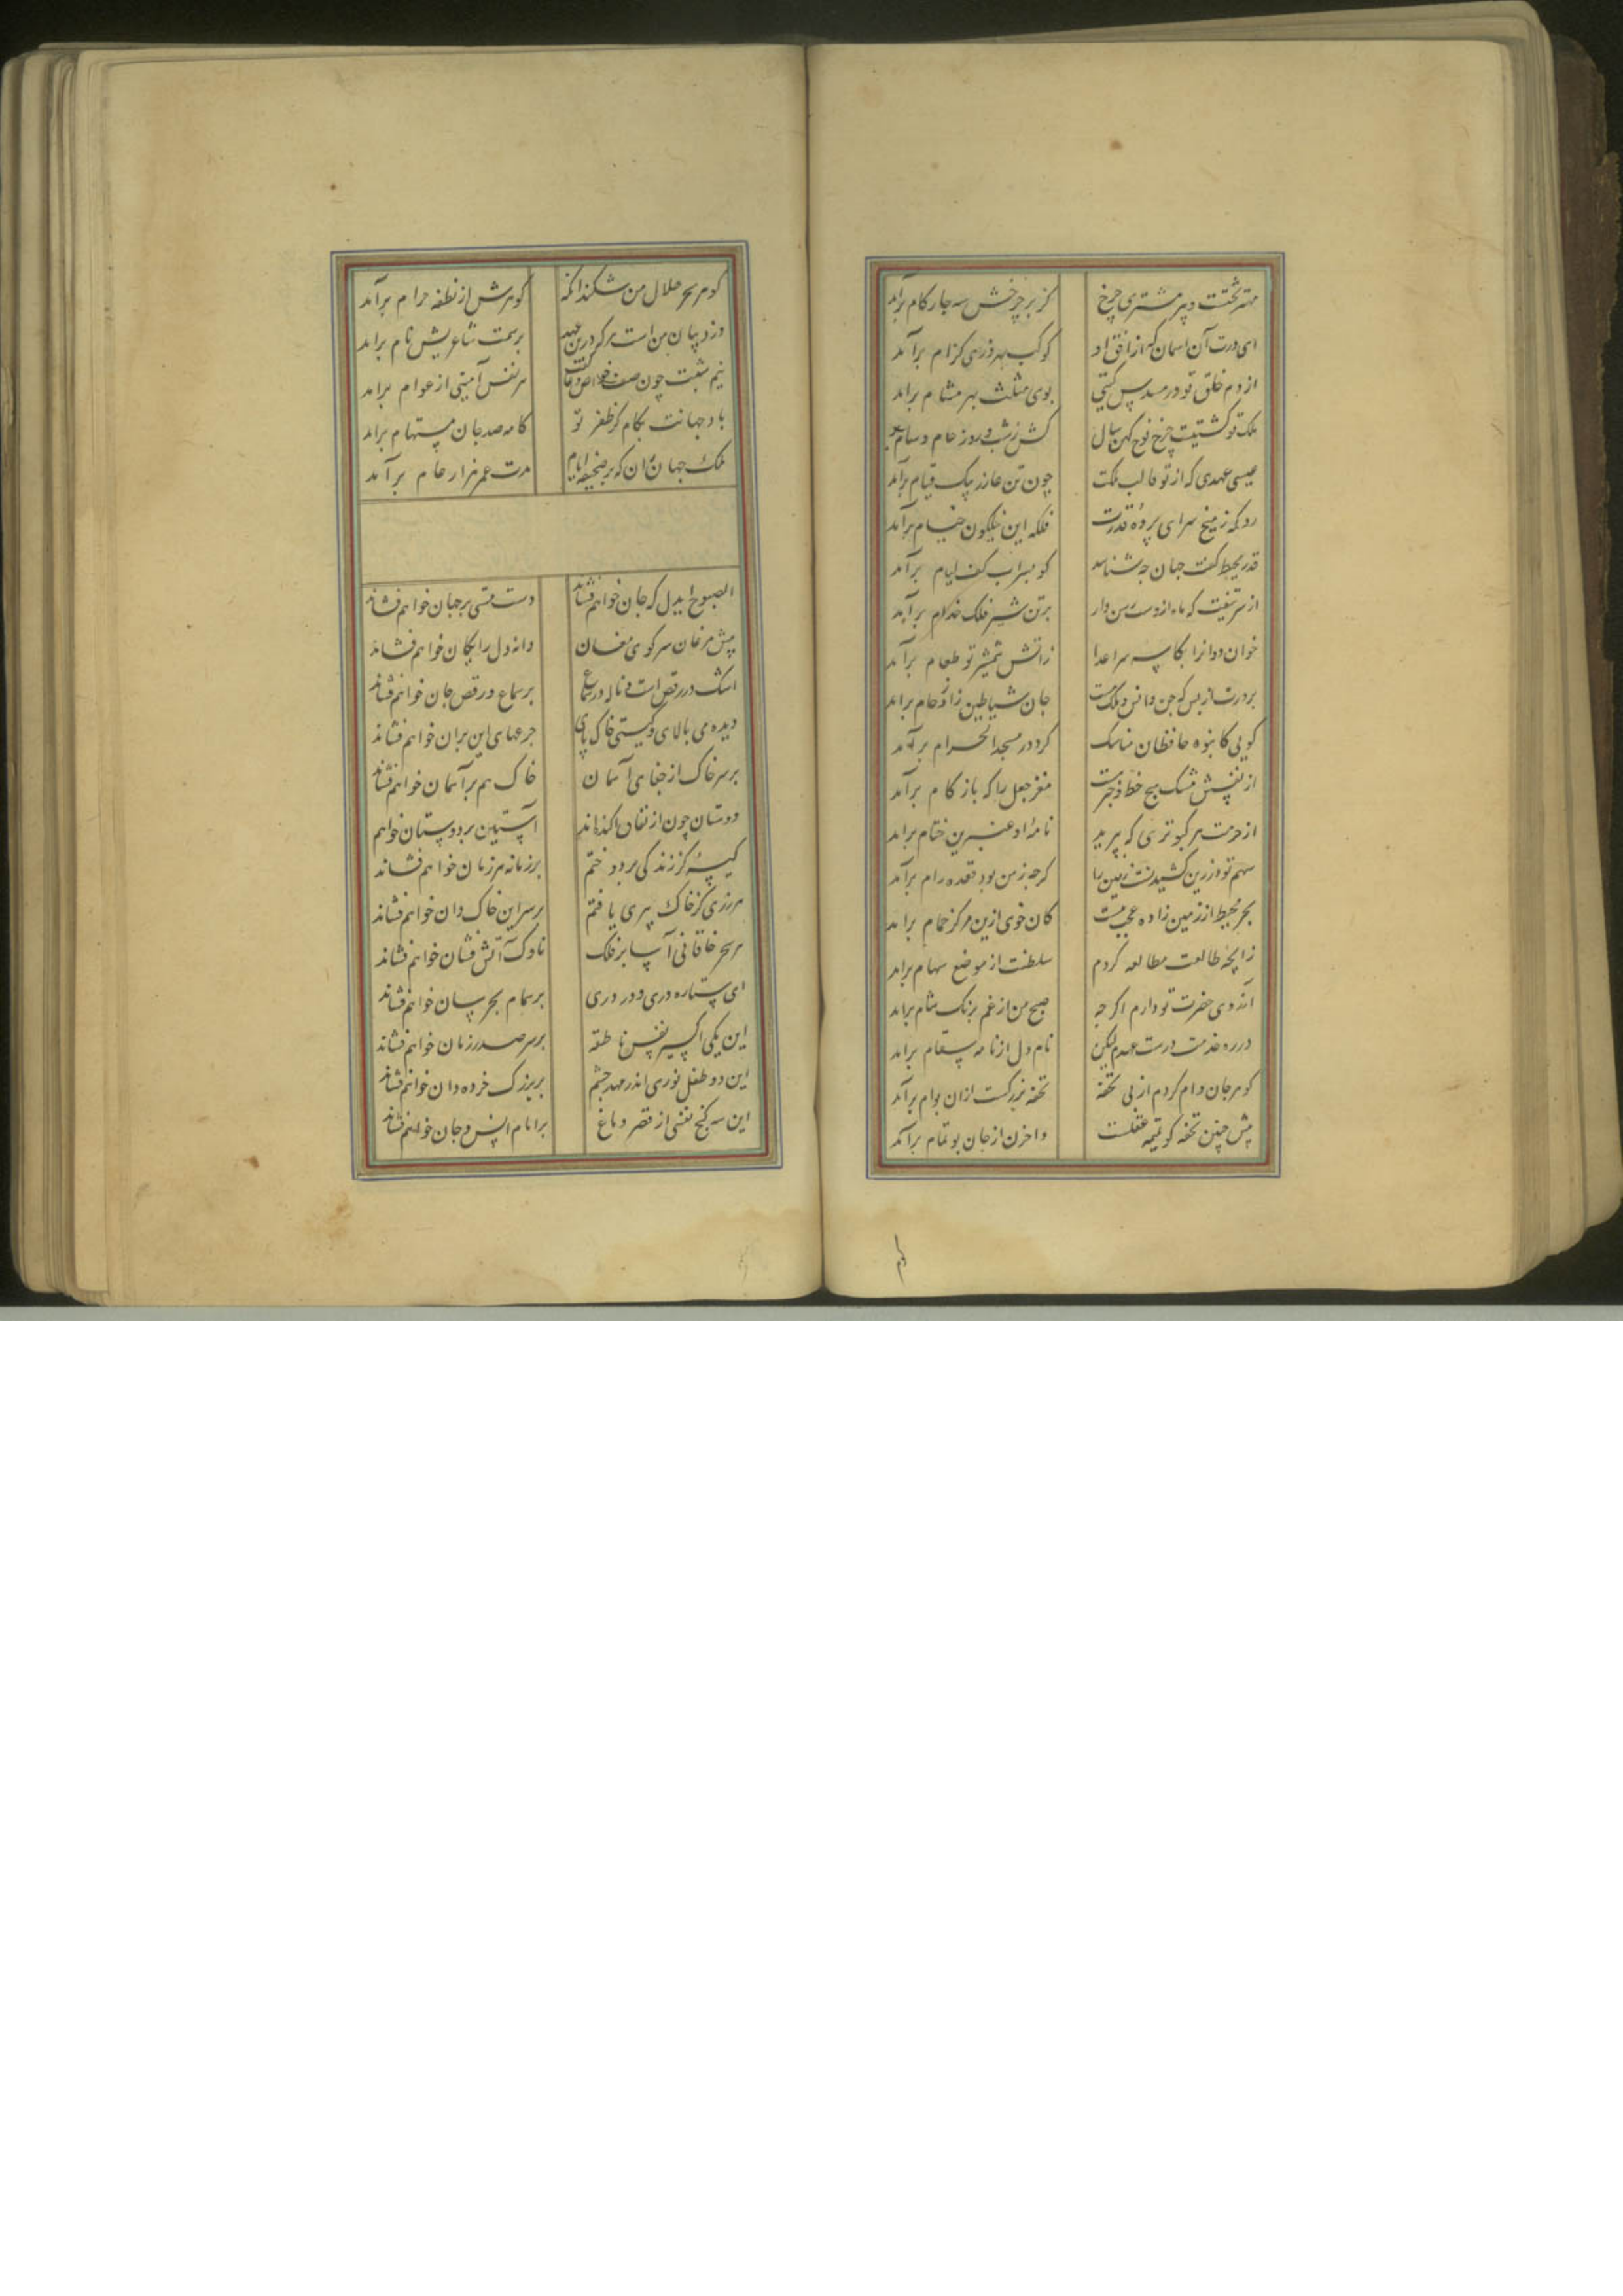 مهتر بخت دبیر مشتری چرخ کز بر چرخش سه چار کام براید
ای درت آن آسمان که از افق او کوکب بهروزی کرام برآید
از دم خلق تو در مسدس کیتی بوی مثلث بهر مشام براید
ملک تو کشتیست چرخ نوح کهن سال کش ز شب و روز حام و سام
عیسی عهدی که از تو قالب ملکت چون تن عازر بیک قیام برآید
رو که ز میخ سرای پرده قدرت فلکه این نیلکون خیام برآید
قدر محیط کفت جهان چه شناسد کو بسراب کف لیام برآید
برتن شیر فلک خدام برآید
خوان دوانرا بکاسه سر اعدا زاتش شمشیر تو طعام برآید
بر درت از بس که جن و انس و ملک هست جان شیاطین ز ازدحام براید
کویی کانبوه حافظان مناسک کرد در مسجد الحرام برآید
مغز جعل را که با زکام برآید
از حرمت هر کبوتری که بپرید نامه او عنبرین ختام براید
بحر محیط از زمین زاده عجب نیست کان خوی ازین مرکز حمام براید
زایچه طالعت مطالعه کردم سلطنت از موضع سهام براید
آرزوی حضرت تو دارم اکر چه صبح من از غم برنک شام براید
در ره خدمت درست عهدم لیکن نام دل از نامه سقام براید
کوهر جان وام کردم از پی تحفه تحفه بزرکست ازان بوام برآید
پیش چنین تحفه کو تمیمه عقلست واحزن از جان بوتمام برآید
کوهر سحر حلال من شکند انکه کوهرش از نطفه حرام برآید
دزد بیان من است هر که درین عهد بر سمت شاعریش نام براید
نیم شبت چون صف خواص دعا کفت هر نفس آمینی از عوام براید
باد جهانت بکام کز ظفر تو کامه صد جان مستهام براید
ملک جهان ران که بر صحیفه ایام مدت عمر هزار عام برآید
الصبوح ایدل که جان خواهم فشاند دست مستی بر جهان خواهم فشاند
پیش مرغان سر کوی مغان دانه دل رایکان خواهم فشاند
اشک در رقص است و ناله در سماع بر سماع و رقص جان خواهم فشاند
دیده می بالای و کیتی خاک پای جرعهای این بران خواهم فشاند
بر سر خاک از جفای آسمان خاک هم بر آسمان خواهم فشاند
دوستان چون از نفاق آکنده اند آستین بر دوستان خواهم
کیسه کز زندکی بردوختم بر زمانه هر زمان خواهم فشاند
هر زری کز خاک بیزی یافتم بر سر این خاک دان خواهم فشاند
هر سحر خاقانی آسا بر فلک ناوک آتش فشان خواهم فشاند
ای ستاره دری و در دری بر همام بحر سان خواهم فشاند
این یکی اکسیر نفس ناطقه بر سر صدر زمان خواهم فشاند
این دو طفل نوری اندر مهد چشم بر بزرک خرده دان خواهم فشاند
این سه کنج نفس از قصر دماغ بر امام انس و جان خواهم فشاند